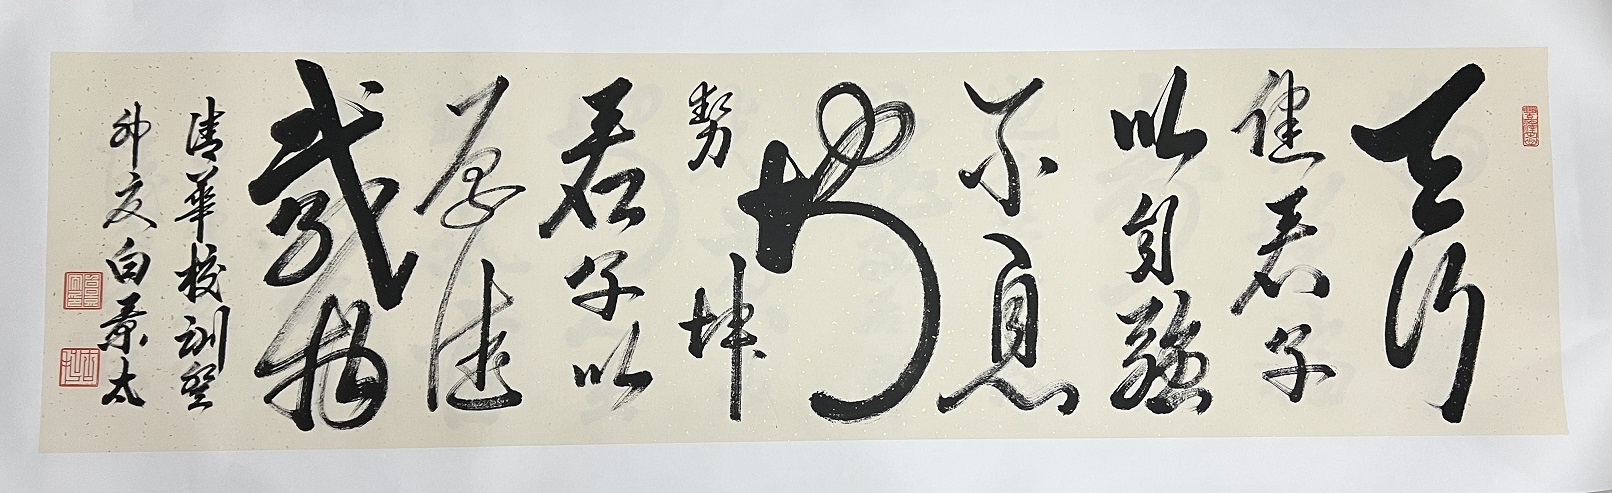 天行
健君子
以自強
不息
地
勢坤
君子以
厚德
載物
清華校訓癸
卯夏白景太